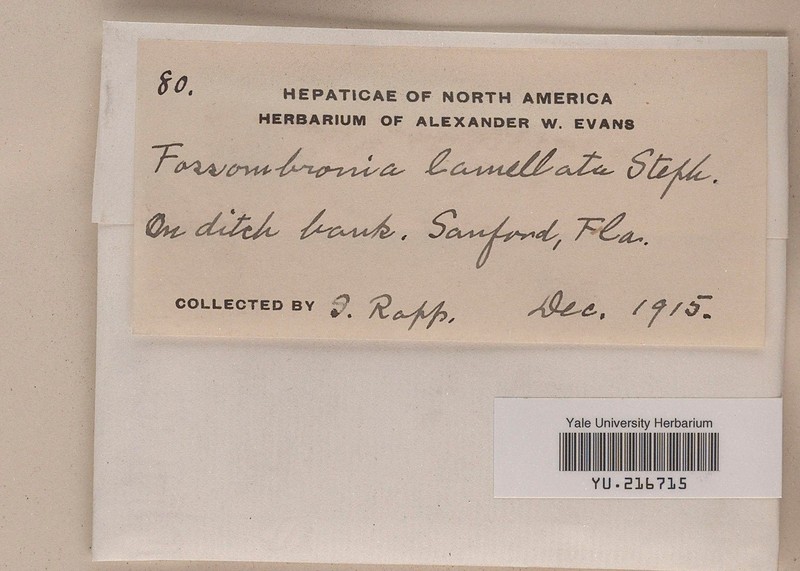 80.
HEPATICAE OF NORTH AMERICA
HERBARIUM OF ALEXANDER W. EVANS
Fossombronia lamellata Steph.
On ditch bank. Sanford, Fla.
COLLECTED BY S. Rapp. Dec. 1915.
Yale University Herbarium
YU.216715